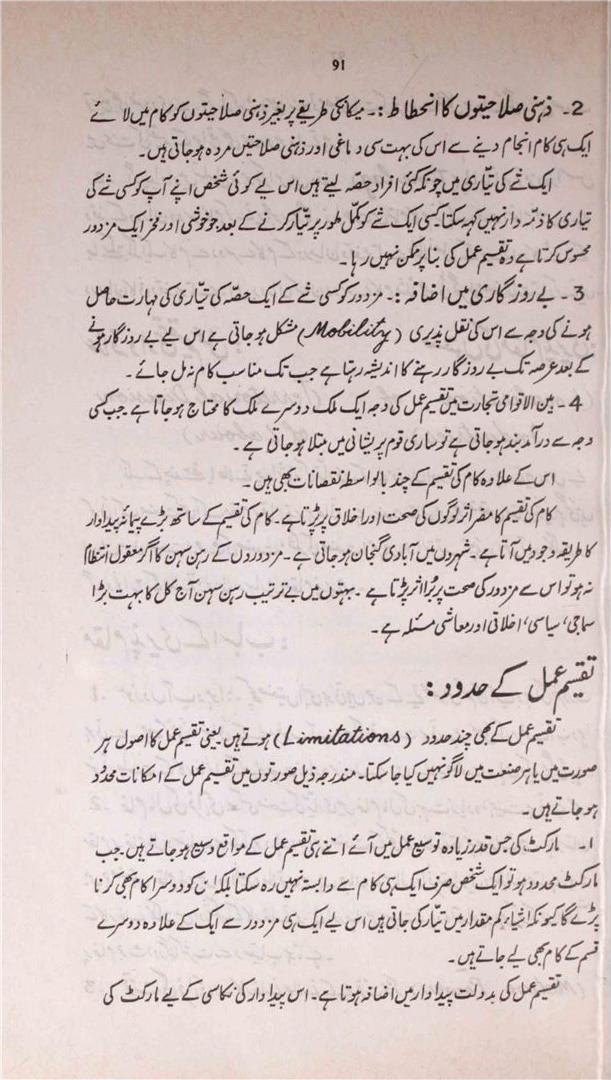 91
2۔ ذہنی صلاحیتوں کا انحطاط :۔ میکانکی طریقے پر بغیر ذہنی صلاحیتوں کو کام میں لائے
ایک ہی کام انجام دینے سے اس کی بہت سی دماغی اور ذہنی صلاحتیں مردہ ہو جاتی ہیں۔
ایک شے کی تیّاری میں چونکہ کئی افراد حصّہ لیتے ہیں اس لیے کوئی شخص اپنے آپ کو کسی شے کی
تیاری کا ذمّہ دار نہیں کہہ سکتا۔ کسی ایک شے کو مکمّل طور پر تیّار کرنے کے بعد جو خوشی اور فخر ایک مزدور
محسوس کرتا ہے وہ تقسیم عمل کی بنا پر ممکن نہیں رہا۔
3۔ بے روزگاری میں اضافہ :۔ مزدور کو کسی شے کے ایک حصّہ کی تیّاری کی مہارت حاصل
ہونے کی وجہ سے اس کی نقل پذیری (Mobility) مشکل ہو جاتی ہے اس لیے بے روزگار ہونے
کے بعد عرصہ تک بے روزگار رہنے کا اندیشہ رہتا ہے جب تک مناسب کام نہ مل جائے۔
4۔ بین الاقوامی تجارت میں تقسیم عمل کی وجہ ایک ملک دوسرے ملک کا محتاج ہو جاتا ہے۔ جب کسی
وجہ سے درآمد بند ہو جاتی ہے تو ساری قوم پریشانی میں مبتلا ہو جاتی ہے۔
اس کے علاوہ کام کی تقسیم کے چند بالواسطہ نقصانات بھی ہیں۔
کام کی تقسیم کا مضر اثر لوگوں کی صحت اور اخلاق پر پڑتا ہے۔ کام کی تقسیم کے ساتھ بڑے پیمانہ پیداوار
کا طریقہ وجود میں آتا ہے۔ شہروں میں آبادی گنجان ہو جاتی ہے۔ مزدوروں کے رہن سہن کا اگر معقول انتظام
نہ ہو تو اس سے مزدور کی صحت پر بُرا اثر پڑتا ہے۔ بہتوں میں بے ترتیب رہن سہن آج کل کا بہت بڑا
سماجی، سیاسی، اخلاقی اور معاشی مسئلہ ہے۔
تقسیم عمل کے حدود :
تقسیم عمل کے بھی چند حدود (Limitations) ہوتے ہیں یعنی تقسیم عمل کا اصول ہر
صورت میں یا ہر صنعت میں لاگو نہیں کیا جا سکتا۔ مندرجہ ذیل صورتوں میں تقسیم عمل کے امکانات محدود
ہو جاتے ہیں۔
1۔ مارکٹ کی جس قدر زیادہ توسیع عمل میں آئے اتنے ہی تقسیم عمل کے مواقع وسیع ہو جاتے ہیں۔ جب
مارکٹ محدود ہو تو ایک شخص صرف ایک ہی کام سے وابستہ نہیں رہ سکتا بلکہ ان کو دوسرا کام بھی کرنا
پڑے گا کیونکہ اشیاء کم مقدار میں تیّار کی جاتی ہیں اس لیے ایک ہی مزدور سے ایک کے علاوہ دوسرے
قسم کے کام بھی لیے جاتے ہیں۔
تقسیم عمل کی بدولت پیداوار میں اضافہ ہوتا ہے۔ اس پیداوار کی نکاسی کے لیے مارکٹ کی